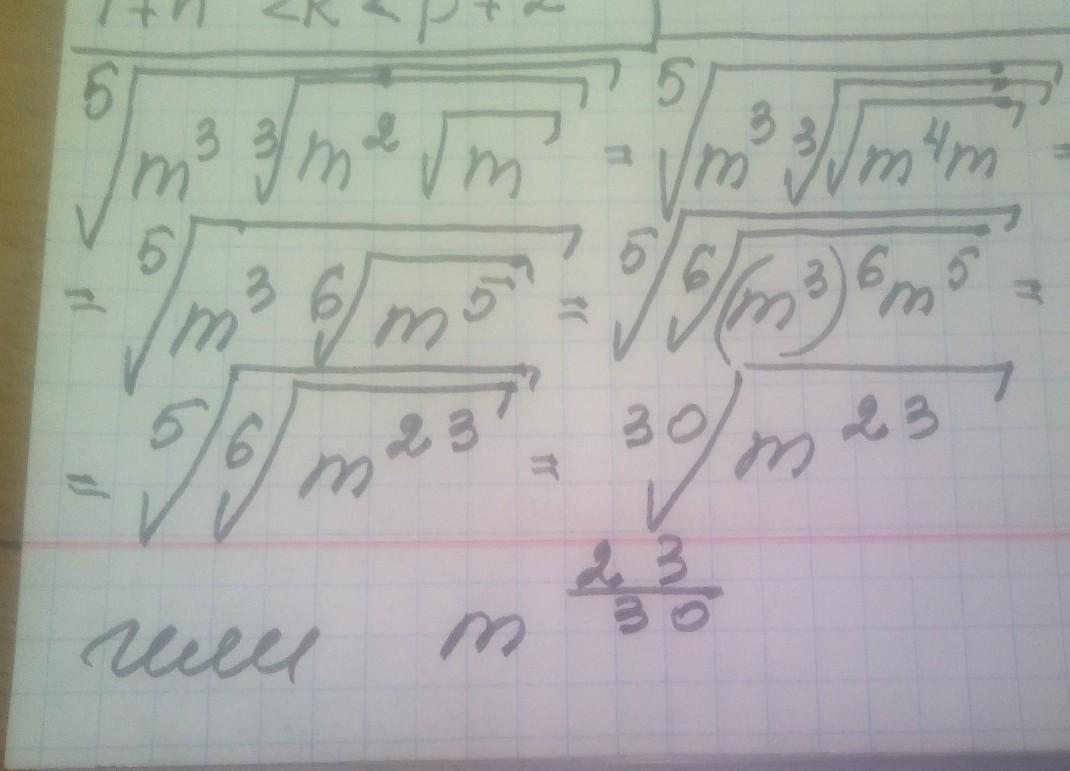 1+n² <k<p+2
⁵√(m³ ³√(m² √m)) = ⁵√(m³ ³√(√(m⁴m))) =
= ⁵√(m³ ⁶√(m⁵)) = ⁵√(⁶√((m³)⁶m⁵)) =
= ⁵√(⁶√(m²³)) = ³⁰√(m²³)
или m^(23/30)